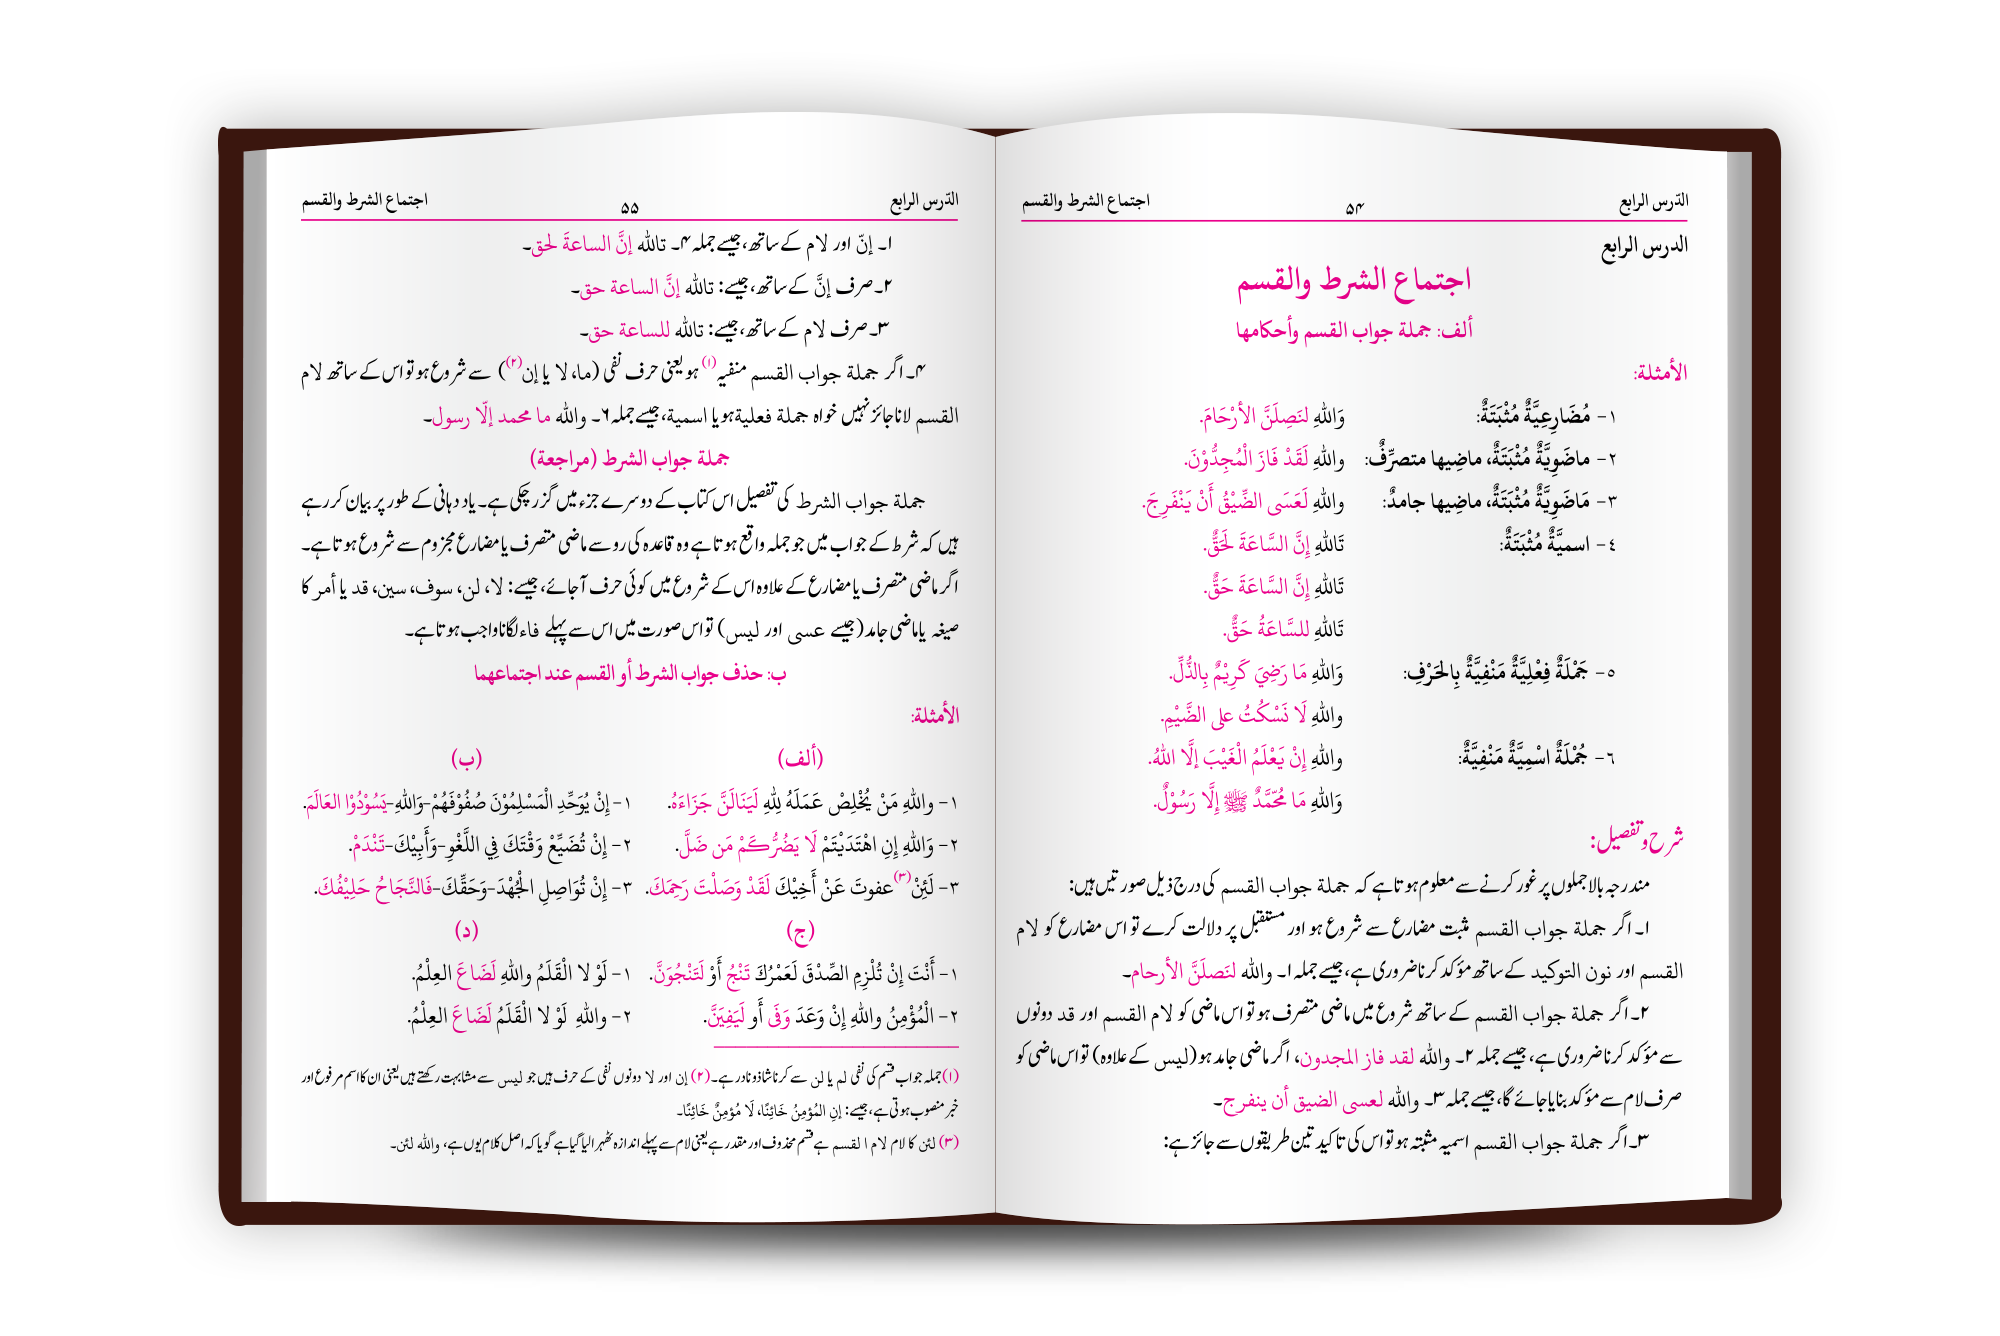 الدّرس الرابع ۵۴ اجتماع الشرط والقسم
الدرس الرابع
اجتماع الشرط والقسم
ألف: جملة جواب القسم وأحكامها
الأمثلة:
١- مُضَارِعِيَّةٌ مُثْبَتَةٌ: وَاللهِ لنَصِلَنَّ الأرْحَامَ.
٢- ماضَوِيَّةٌ مُثْبَتَةٌ، ماضِيها متصرِّفٌ: واللهِ لَقَدْ فَازَ الْمُجِدُّوْنَ.
٣- مَاضَوِيَّةٌ مُثْبَتَةٌ، ماضِيها جامدٌ: واللهِ لَعَسَى الضِّيْقُ أَنْ يَنْفَرِجَ.
٤- اسميَّةٌ مُثْبَتَةٌ: تَاللهِ إِنَّ السَّاعَةَ لَحَقٌّ.
تَاللهِ إِنَّ السَّاعَةَ حَقٌّ.
تَاللهِ للسَّاعَةُ حَقٌّ.
٥- جَمْلَةٌ فِعْلِيَّةٌ مَنْفِيَّةٌ بِالحَرْفِ: وَاللهِ مَا رَضِيَ كَرِيْمٌ بِالذُّلِّ.
واللهِ لَا نَسْكُتُ على الضَّيْمِ.
٦- جُمْلَةٌ اسْمِيَّةٌ مَنْفِيَّةٌ: واللهِ إِنْ يَعْلَمُ الْغَيْبَ إلَّا اللهُ.
وَاللهِ مَا مُحَمَّدٌ ﷺ إِلَّا رَسُوْلٌ.
شرح و تفصیل:
مندرجہ بالا جملوں پر غور کرنے سے معلوم ہوتا ہے کہ جملة جواب القسم کی درج ذیل صورتیں ہیں:
۱۔ اگر جملة جواب القسم مثبت مضارع سے شروع ہو اور مستقبل پر دلالت کرے تو اس مضارع کو لام
القسم اور نون التوکید کے ساتھ مؤکد کرنا ضروری ہے، جیسے جملہ ۱۔ والله لنَصلَنَّ الأرحام۔
۲۔ اگر جملة جواب القسم کے ساتھ شروع میں ماضی متصرف ہو تو اس ماضی کو لام القسم اور قد دونوں
سے مؤکد کرنا ضروری ہے، جیسے جملہ ۲۔ والله لقد فاز المجدون، اگر ماضی جامد ہو (لیس کے علاوہ) تو اس ماضی کو
صرف لام سے مؤکد بنایا جائے گا، جیسے جملہ ۳۔ والله لعسى الضيق أن ينفرج۔
۳۔ اگر جملة جواب القسم اسمیہ مثبتہ ہو تو اس کی تاکید تین طریقوں سے جائز ہے:
الدّرس الرابع ۵۵ اجتماع الشرط والقسم
۱۔ إنّ اور لام کے ساتھ، جیسے جملہ ۴۔ تالله إنَّ الساعةَ لحق۔
۲۔ صرف إنَّ کے ساتھ، جیسے: تالله إنَّ الساعة حق۔
۳۔ صرف لام کے ساتھ، جیسے: تالله للساعة حق۔
۴۔ اگر جملة جواب القسم منفیہ(۱) ہو یعنی حرف نفی (ما، لا یا إن(۲)) سے شروع ہو تو اس کے ساتھ لام
القسم لانا جائز نہیں خواہ جملة فعلية ہو یا اسمية، جیسے جملہ ۶۔ والله ما محمد إلّا رسول۔
جملة جواب الشرط (مراجعة)
جملة جواب الشرط کی تفصیل اس کتاب کے دوسرے جزء میں گزر چکی ہے۔ یاد دہانی کے طور پر بیان کر رہے
ہیں کہ شرط کے جواب میں جو جملہ واقع ہوتا ہے وہ قاعدہ کی رو سے ماضی متصرف یا مضارع مجزوم سے شروع ہوتا ہے۔
اگر ماضی متصرف یا مضارع کے علاوہ اس کے شروع میں کوئی حرف آ جائے، جیسے: لا، لن، سوف، سین، قد یا أمر کا
صیغہ یا ماضی جامد (جیسے عسی اور لیس) تو اس صورت میں اس سے پہلے فاء لگانا واجب ہوتا ہے۔
ب: حذف جواب الشرط أو القسم عند اجتماعهما
الأمثلة:
(ألف) (ب)
١- واللهِ مَنْ يُخْلِصْ عَمَلَهُ لِلهِ لَيَنَالَنَّ جَزَاءَهُ. ١- إِنْ يُوَحِّدِ الْمَسْلِمُوْنَ صُفُوْفَهُمْ-وَاللهِ-يَسُوْدُوْا العَالَمَ.
٢- وَاللهِ إِنِ اهْتَدَيْتَمْ لَا يَضُرُّكَمْ مَن ضَلَّ. ٢- إِنْ تُضَيِّعْ وَقْتَكَ فِي اللَّغْوِ-وَأَبِيْكَ-تَنْدَمْ.
٣- لَئِنْ(۳) عفوتَ عَنْ أَخِيْكَ لَقَدْ وَصَلْتَ رَحِمَكَ. ٣- إِنْ تُوَاصِلِ الْجُهْدَ-وَحَقِّكَ-فَالنَّجَاحُ حَلِيْفُكَ.
(ج) (د)
١- أَنْتَ إِنْ تُلْزِمِ الصِّدْقَ لَعَمْرُكَ تَنْجُ أَوْ لَتَنْجُوَنَّ. ١- لَوْ لا الْقَلَمُ واللهِ لَضَاعَ العِلْمُ.
٢- الْمُؤْمِنُ واللهِ إِنْ وَعَدَ وَفَى أَو لَيَفِيَنَّ. ٢- واللهِ لَوْ لا الْقَلَمُ لَضَاعَ العِلْمُ.
(۱) جملہ جواب قسم کی نفی لم یا لن سے کرنا شاذ و نادر ہے۔ (۲) إن اور لا دونوں نفی کے حرف ہیں جو لیس سے مشابہت رکھتے ہیں یعنی ان کا اسم مرفوع اور
خبر منصوب ہوتی ہے، جیسے: إنِ المُؤمِنُ خَائِنًا، لَا مُؤمِنٌ خَائِنًا۔
(۳) لئن کا لام لام القسم ہے قسم محذوف اور مقدر ہے یعنی لام سے پہلے اندازہ ٹھہرا لیا گیا ہے گویا کہ اصل کلام یوں ہے، والله لئن۔